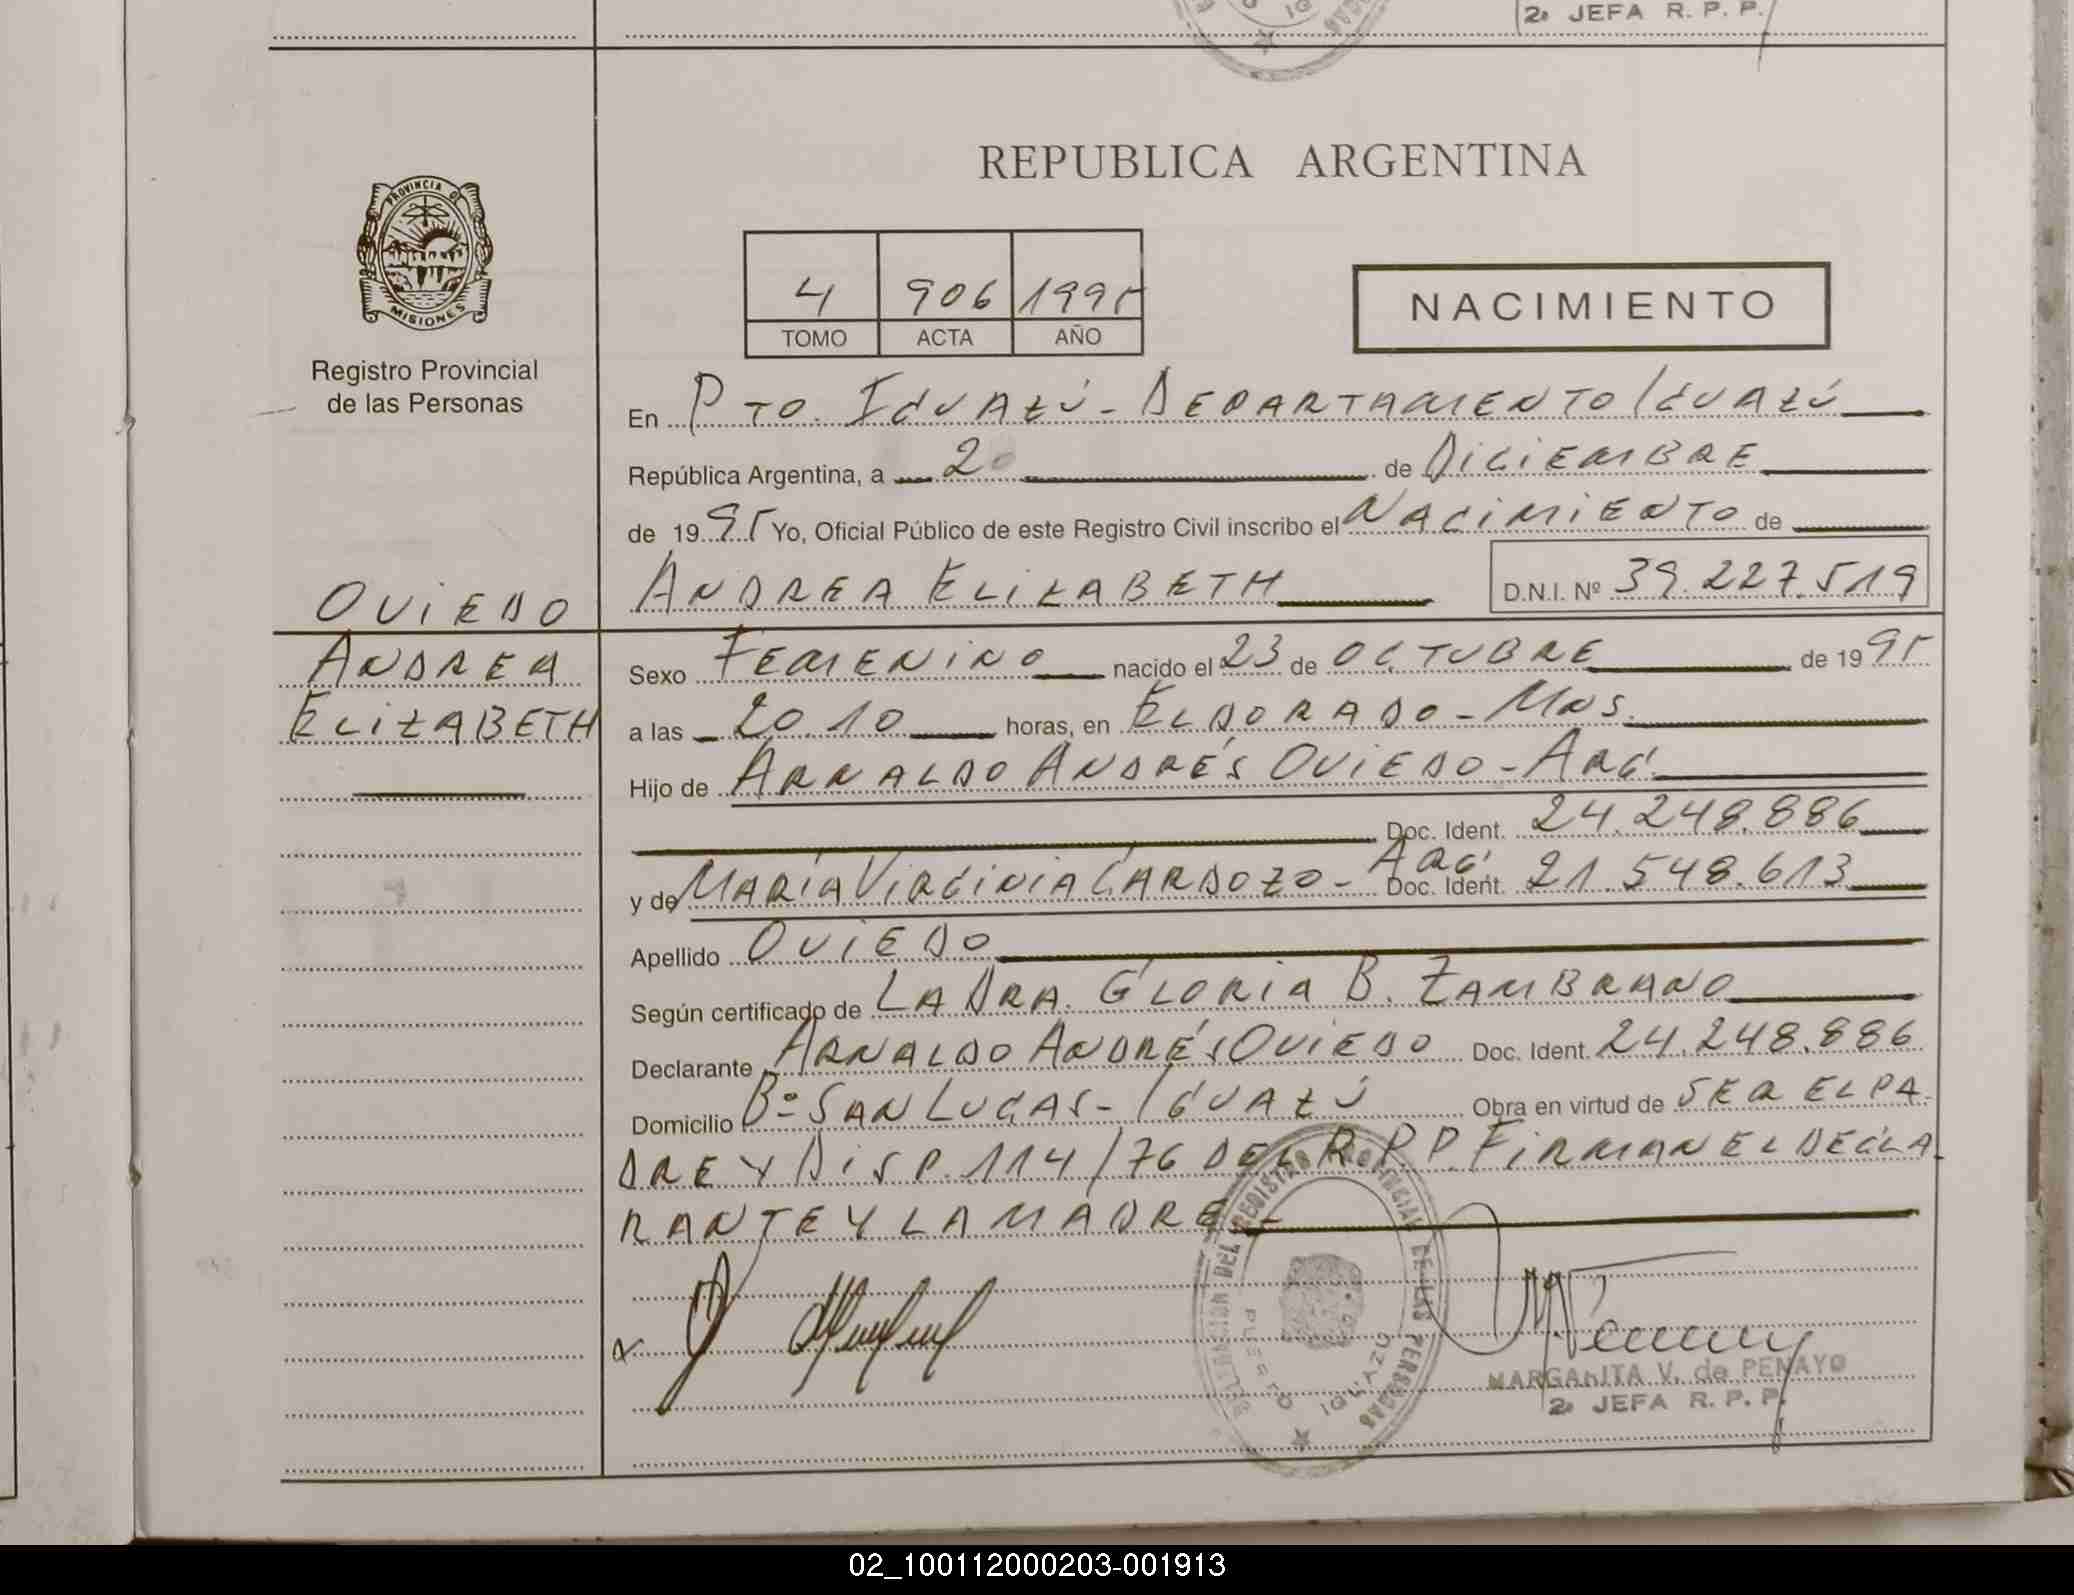 2º JEFA R. P. P.
REPUBLICA ARGENTINA
PROVINCIA DE
MISIONES
Registro Provincial
de las Personas
4 906 1995
TOMO ACTA AÑO
NACIMIENTO
En PTO. IGUAZÚ - DEPARTAMENTO IGUAZÚ
República Argentina, a 20 de DICIEMBRE
de 1995 Yo, Oficial Público de este Registro Civil inscribo el NACIMIENTO de
OVIEDO
ANDREA ELIZABETH D.N.I. Nº 39.227.519
ANDREA
ELIZABETH
Sexo FEMENINO nacido el 23 de OCTUBRE de 1995
a las 20.10 horas, en ELDORADO - MNS.
Hijo de ARNALDO ANDRÉS OVIEDO - ARG.
Doc. Ident. 24.248.886
y de MARÍA VIRGINIA CARDOZO - ARG. Doc. Ident. 21.548.613
Apellido OVIEDO
Según certificado de LA DRA. GLORIA B. ZAMBRANO
Declarante ARNALDO ANDRÉS OVIEDO Doc. Ident. 24.248.886
Domicilio Bº SAN LUCAS - IGUAZÚ Obra en virtud de SER EL PA
DRE Y DISP. 114/76 DEL R.P.P. FIRMAN EL DECLA
RANTE Y LA MADRE. -
DEL REGISTRO PROVINCIAL DE LAS PERSONAS
PUERTO IGUAZU
MARGARITA V. de PENAYO
2º JEFA R. P. P.
02_100112000203-001913